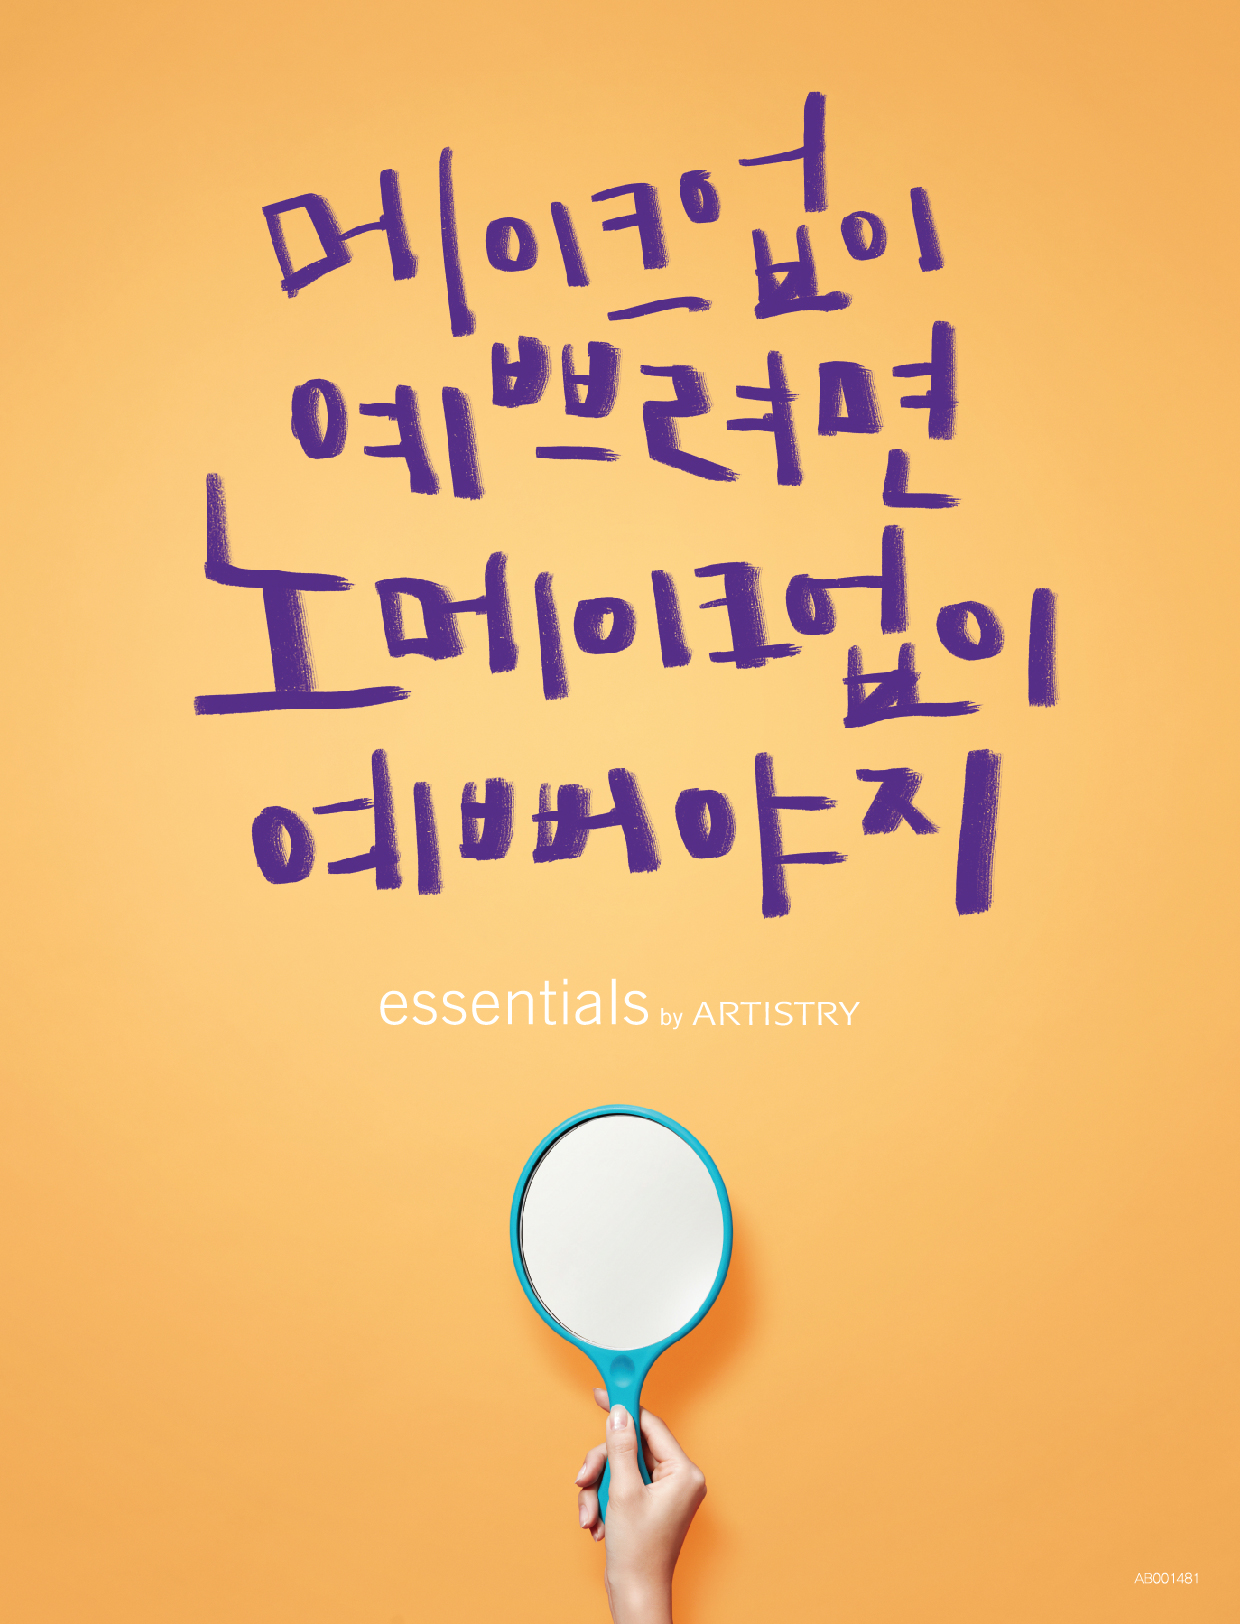 메이크업이
예쁘려면
노메이크업이
예뻐야지
essentials by ARTISTRY
AB001481